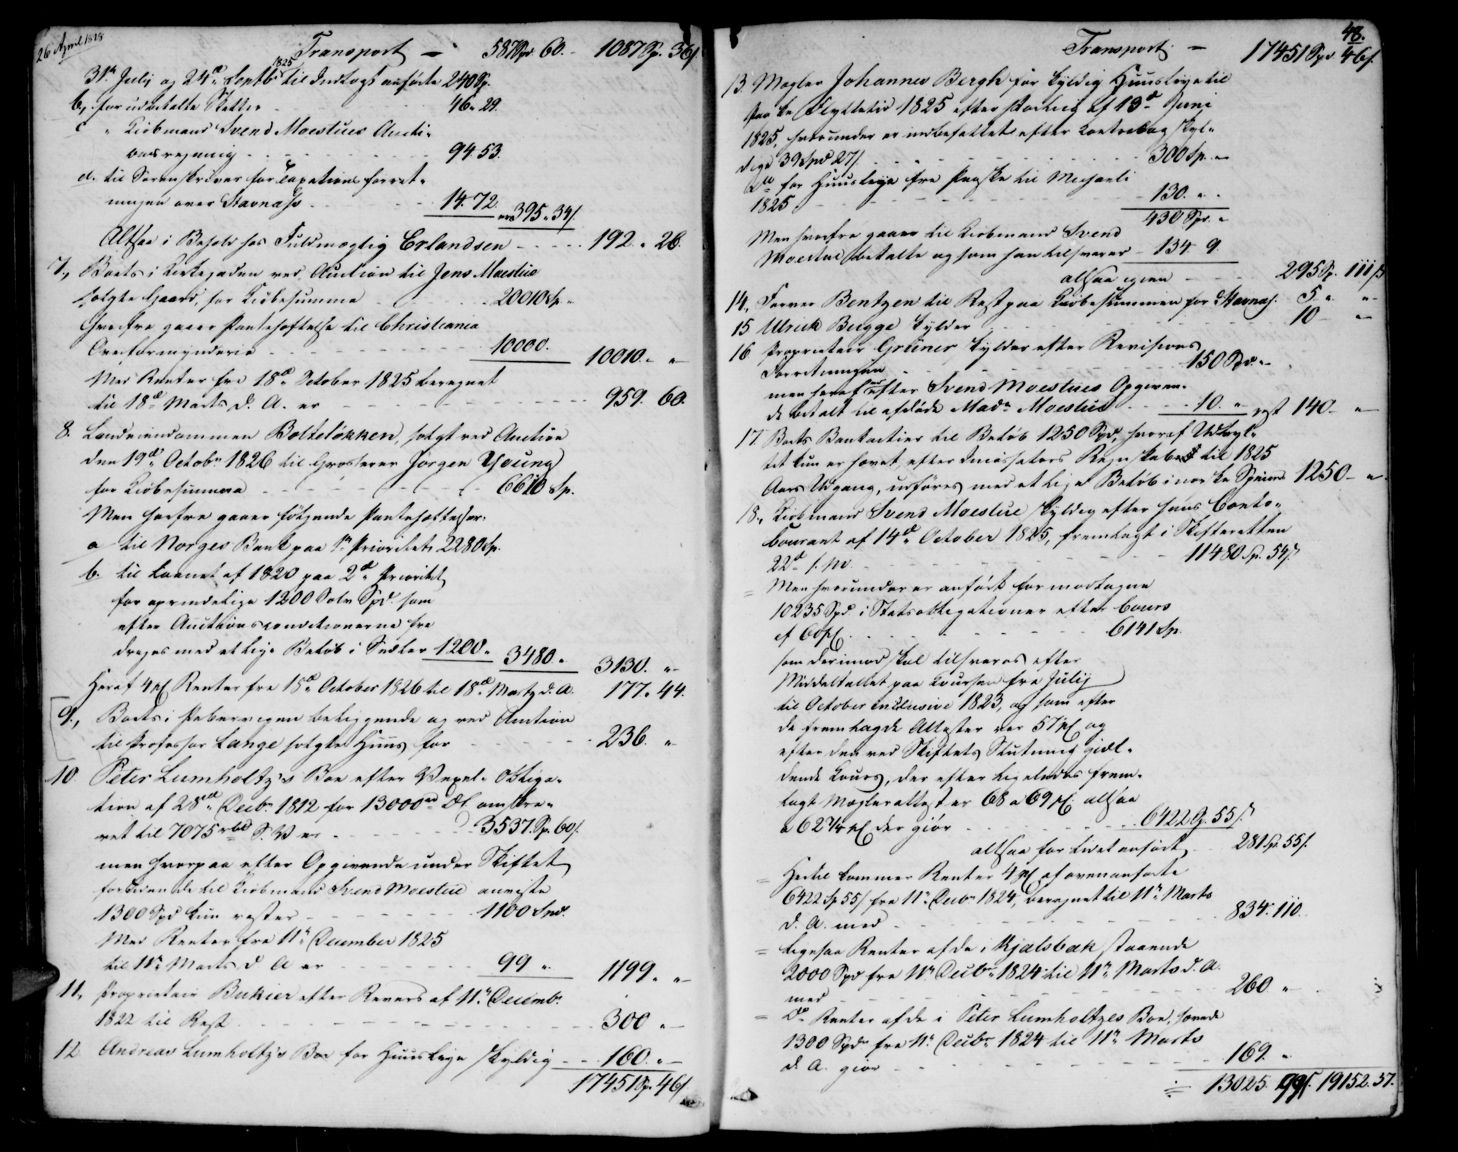 26 April 1828
Transport – 587 Spd 60. – 1087 Sp. 36ſ
31te July og 24de Septbr 1825 til Indtægt anførte 240 Sp.
b, for udbetalte Skatter - 46. 29.
c " Kiøbmand Svend Moestues Aucti-
onsregning - 94. 53.
d. til Sorenskriver for Taxations forret-
ningen over Stavnæs - 14. 72 395. 34ſ.
Altsaa i Behold hos Fuldmægtig Erlandsen - 192. 26.
7., Boets i Kirkegaden ved Auction til Jens Moestue
solgte Gaard, for Kiøbesumma - 20010 Sp. -
Herfra gaaer Pantehæftelse til Christiania
Overformynderie - 10000. 10010. "
Med Renter fra 18de October 1825 beregnet
til 18de Marts d. A. er - 959. 60.
8. Landeiendommen Bolteløkken, solgt ved Auction
den 19de Octobr 1826 til Grosserer Jørgen Young
for Kiøbesumma - 6610 Sp.
Men herfra gaaer følgende Pantehæftelser:
a til Norges Bank paa 1te Prioritet 2280 Sp.
b. til Laanet af 1820 paa 2de Prioritet
for oprindelige 1200 Sølv Spd som
efter Auctionsconditionerne fra
drages med et lige Beløb i Sedler 1200. 3480. 3130. "
Heraf 4 pC Renter fra 15de October 1826 til 18de Marts d. A. 177. 44.
9., Boets i Pebervigen beliggende og ved Auction
til Professor Lange solgte Huus for - 236. "
10. Peter Lumholtz's Boe efter Vexel-Obliga-
tion af 28de Decbr 1812 for 13000 omskre-
vet til 7075 rbd S. V. er - 3537 Sp. 60ſ.
men hvorpaa efter Opgivende under Skiftet
forhen til Kiøbmand Svend Moestue anviste
1300 Spd kun rester - 1100 Spd.
Med Renter fra 11te December 1825
til 11te Marts d. A. er - 99. 1199. "
11., Proprietair Bukier efter Revers af 11te Decembr
1822 til Rest - 300 "
12 Andreas Lumholtz's Boe for Huusleje skyldig - 160. "
17451 Sp. 46ſ
48.
Transport – 17451 Spd 46ſ.
13 Mægler Johannes Bergh for skyldig Huusleje til
Paaske Flyttetid 1825 efter Forlig af 13de Juni
1825, hvorunder er indbefattet efter Contrabog skyl-
dige 39 Spd 27ſ. - 300 Sp. "
Do for Huusleje fra Paaske til Michaeli
1825 - 130. "
430 Spd. "
Men herfra gaaer til Kiøbmand Svend
Moestue betalte og som han tilsvarer - 134. 9
altsaa igien - 295 Sp. 111ſ
14, Farver Bentzen til Rest paa Kiøbesummen for Stavnæs. 5. "
15 Ulrick Bugge skylder - 10 "
16 Proprietair Grüner skylder efter Revisions
Forretningen - 150 Spd. "
men heraf er efter Svend Moestues Opgiven-
de betalt til afdøde Made Moestue - 10. " rest 140. "
17 Boets Bankactier til Beløb 1250 Spd, hvoraf Udbyt-
tet kun er hævet efter Incassators Regnskaber til 1825
Aars Udgang, udføres med et lige Beløb i norske Species 1250. "
18., Kiøbmand Svend Moestue skyldig efter hans Conto-
Courant af 14de October 1825, fremlagt i Skifteretten
22de s. M. - 11480 Sp. 54ſ
= Men herunder er anført for modtagne
10235 Spd i Statsobligationer efter Cours
af 60 pC. - 6141 Sp.
som derimod skal tilsvares efter
Middeltallet paa Coursen fra July
til October inclusive 1823, og som efter
de fremlagde Attester var 57 pC og
efter den ved Skiftets Slutning gjæl-
dende Cours, der efter ligeledes frem-
lagt Mæglerattest er 68 a 69 pC. altsaa
a 62 3/4 pC. der giør - 6422 Sp. 55ſ.
altsaa for lidet anført - 281 Sp 55ſ.
= Hertil kommer Renter 4 pC af ovenanførte
6422 Sp 55ſ fra 11te Decbr 1824, beregnet til 11te Marts
d. A. med - 834. 110.
= Ligesaa Renter af de i Kjølsbak staaende
2000 Spd fra 11te Decbr 1824 til 11te Marts d. A.
med - 260 "
= Do Renter af de i Peter Lumholtzes Boe, havde
1300 Spd fra 11te Decbr 1824 til 11te Marts
d. A. giør - 169. "
13025. 99ſ. 19152. 57.